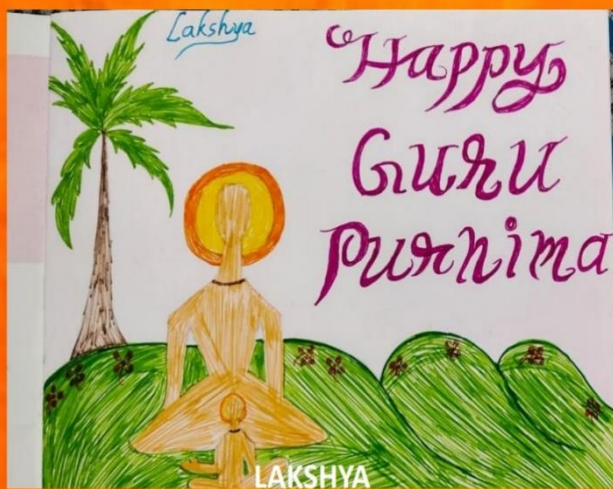 Lakshya
Happy
Guru
Purnima
LAKSHYA